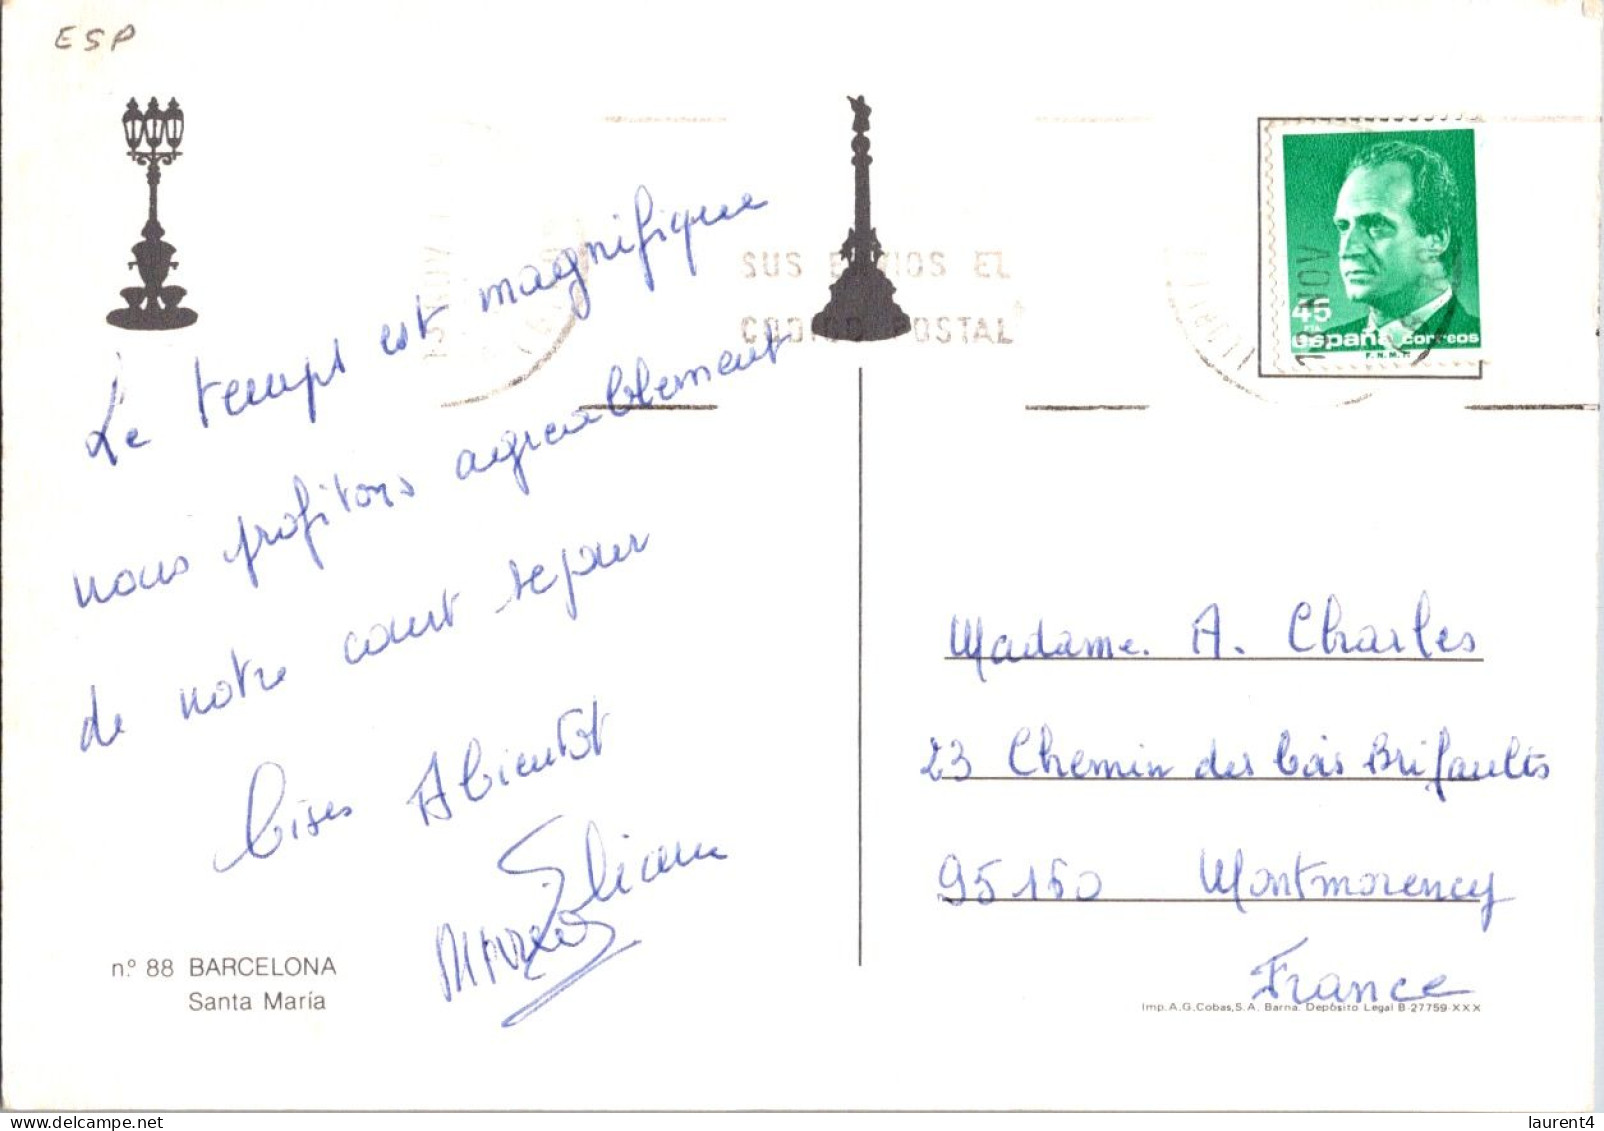 ESP
Le temps est magnifique
nous profitons agreablement
de notre court sejour
bises A bientôt
Eliane
nº 88 BARCELONA
Santa María
SUS ENVIOS EL
CODIGO POSTAL
NOV
45
PTA
España correos
F.N.M.T.
Madame. A. Charles
23 Chemin des bois Brifaults
95160 Montmorency
France
Imp. A.G. Cobas, S.A. Barna. Depósito Legal B-27759-XXX
laurent4